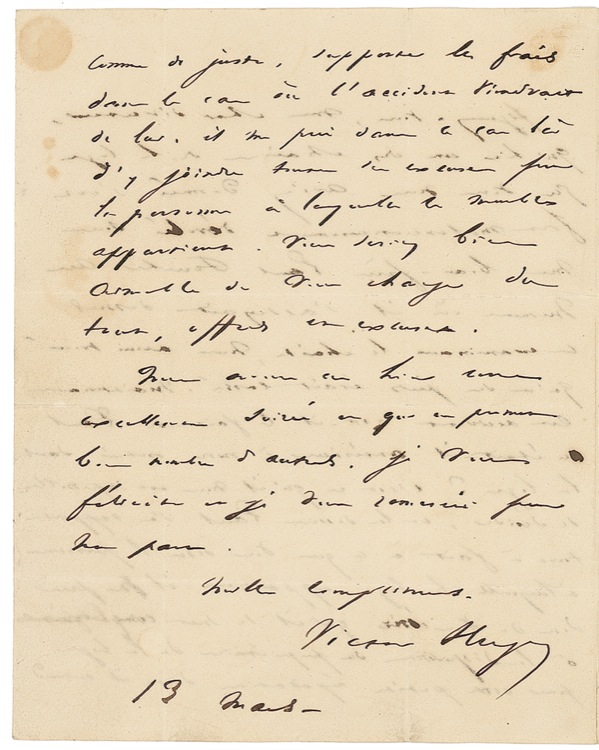 comme de juste, supporter les frais
dans le cas où l'accident viendrait
de lui. il me prie dans ce cas là
d'y joindre toutes ses excuses pour
la personne à laquelle le meuble
appartient. Vous seriez bien
aimable de vous charger du
tout, offres et excuses.
Nous avons eu hier une
excellente soirée et qui en promet
bon nombre d'autres. je vous
félicite et je vous remercie pour
ma part.
mille compliments.
Victor Hugo
13 mars